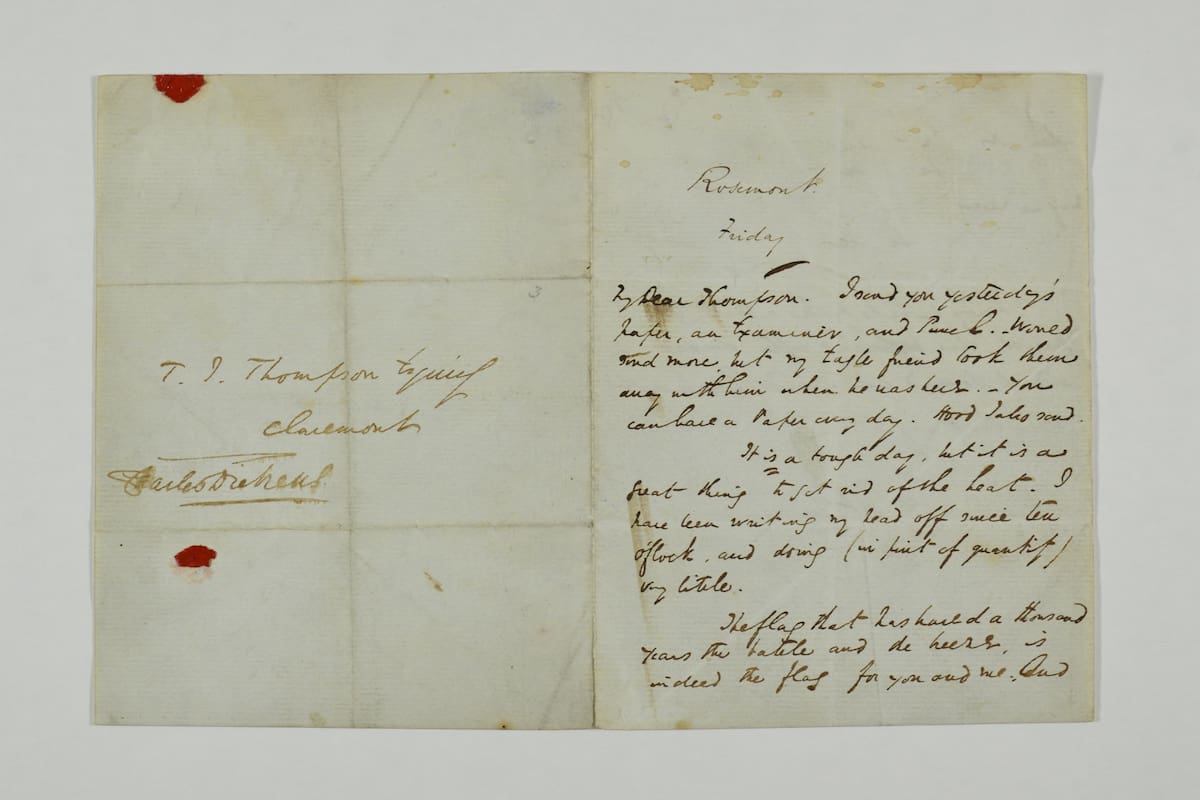 T. J. Thompson Esquire
Claremont
Charles Dickens
3
Rosemont.
Friday
My Dear Thompson. I send you yesterday's
Paper, an Examiner, and Punch. Would
send more, but my Eagle friend took them
away with him when he was here. – You
can have a Paper every day. Hood I also send.
It is a tough day, but it is a
great thing to get rid of the heat. I
have been writing my head off since ten
o'Clock, and doing (in point of quantity)
very little.
The flag that has braved a thousand
years the battle and the breeze, is
indeed the flag for you and me. And